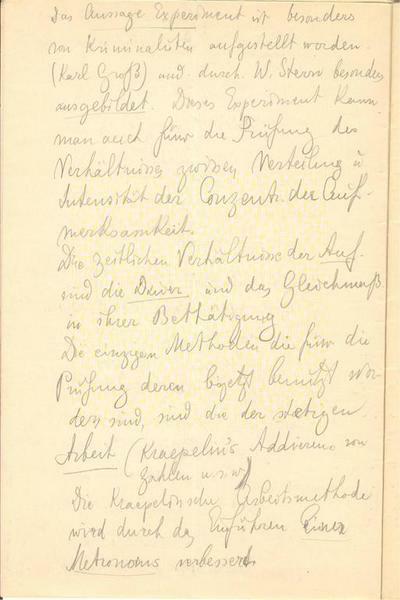 Das Aussage Experiment ist besonders
von Kriminalisten aufgestellt worden
(Karl Groß) und durch W. Stern besonders
ausgebildet. Dieses Experiment kann
man auch für die Prüfung des
Verhältnisses zwissen Verteilung u
Intensität der Conzentr. der Auf-
merksamkeit.
Die zeitlichen Verhältnisse der Auf.
sind die Dauer und das Gleichmaß
in ihrer Bethätigung
Die einzigen Methoden die für die
Prüfung deren bisjetzt benutzt wor
den sind, sind die der stetigen
Arbeit (Kraepelin's Addieren von
Zahlen u.s.w)
Die Kraepelinsche Arbeitsmethode
wird durch das Einführen eines
Metronoms verbessert